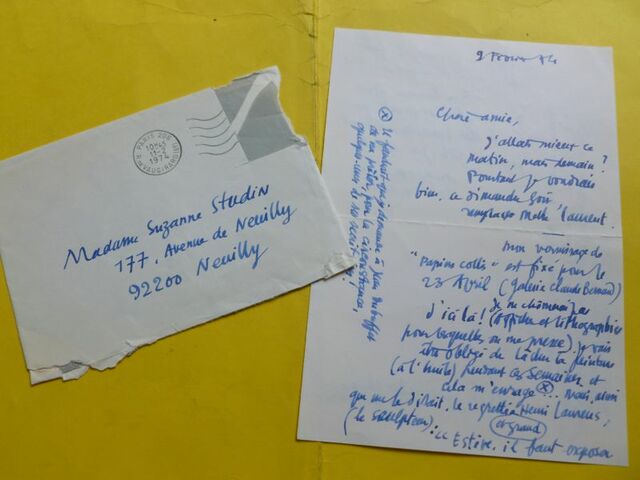 PARIS 206
10H45
11-2
1974
R. VAUGIRARD (15e)
Madame Suzanne Studin
177, Avenue de Neuilly
92200 Neuilly
9 Février 74
Chère amie,
J'allais mieux ce
matin, mais demain?
Pourtant je voudrais
bien, ce dimanche soir
remplacer Malle Laurent.
mon vernissage de
"Papiers collés" est fixé pour le
23 Avril (galerie Claude Bernard)
d'ici là! Je ne chômerai pas
(affiche et lithographies
pour lesquelles on me presse) je vais
être obligé de lâcher la peinture
(à l'huile) pendant ces semaines et
cela m'enrage ⊗... mais, ainsi
que me le disait, le regretté Henri Laurens,
(le sculpteur) et grand
: "Estève, il faut exposer
⊗ il faudrait que je demande à Jean Dubuffet
de me prêter, pour la circonstance,
quelques-unes de ses